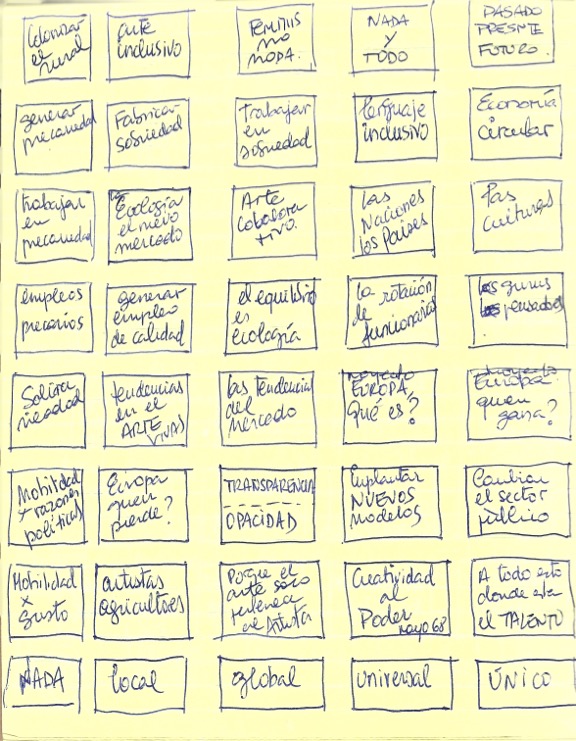 Colonizar
el
rural
arte
inclusivo
FEMINIS
NO
MODA.
NADA
Y
TODO
PASADO
PRESENTE
FUTURO.
generar
precariedad
Fabricar
sobriedad
trabajar
en
sobriedad
lenguaje
inclusivo
Economía
Circular
trabajar
en
precariedad
Ecología
el nuevo
mercado
Arte
Colabora
tivo.
Las
Naciones
los Países
las
culturas
empleos
precarios
generar
empleo
de calidad
el equilibrio
es
ecología
la rotación
de
funcionarios
los gurus
los pensadores
tendencias
en el
ARTE
VIVAS
las tendencias
del
mercado
proyecto
EUROPA
qué es?
proyecto
Europa
quien
gana?
Mobilidad
x razones
políticas
Europa
quien
pierde?
TRANSPARENCIA
OPACIDAD
Implantar
NUEVOS
modelos
Cambiar
el sector
público
Mobilidad
x
gusto
artistas
agricultores
Porque el
arte solo
al Artista
Creatividad
al
Poder
mayo 68
A todo esto
donde esta
el TALENTO
NADA
local
global
universal
ÚNICO